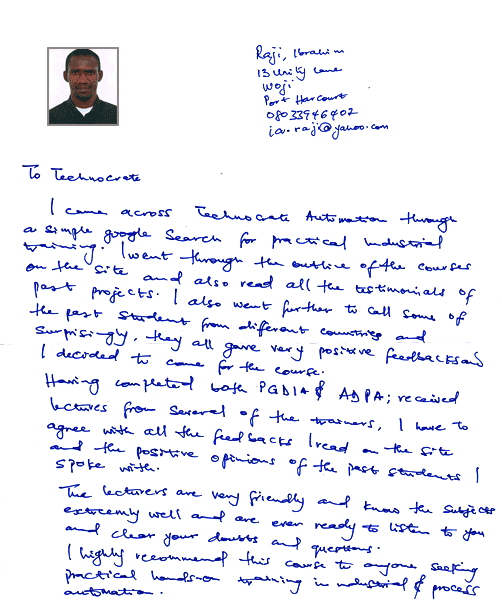 Raji, Ibrahim
13 Unity Lane
Woji
Port Harcourt
08033946402
ia.raji@yahoo.com
To Technocrate
I came across Technocrate Automation through
a simple google search for practical Industrial
training. I went through the outline of the courses
on the site and also read all the testimonials of
past projects. I also went further to call some of
the past student from different countries and
surprisingly, they all gave very positive feedbacks and
I decided to come for the course.
Having completed both PGDIA & ADPA; received
lectures from several of the trainers, I have to
agree with all the feedbacks I read on the site
and the positive opinions of the past students I
spoke with.
The lecturers are very friendly and know the subjects
extremely well and are ever ready to listen to you
and clear your doubts and questions.
I highly recommend this course to anyone seeking
practical hands-on training in industrial & process
automation.